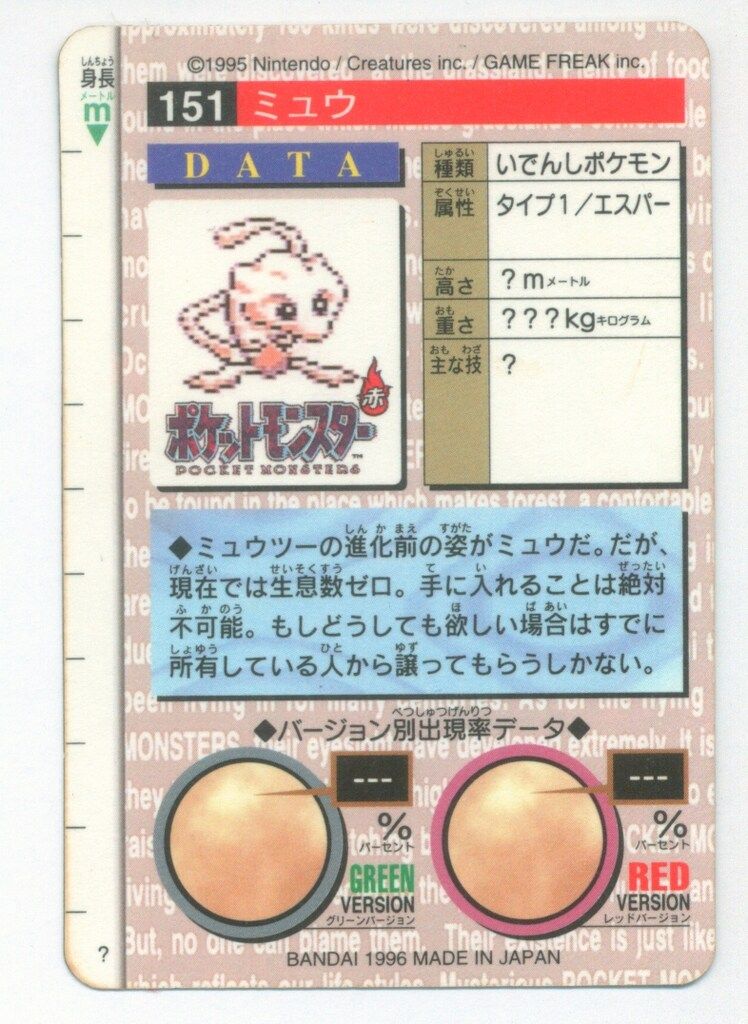 ©1995 Nintendo / Creatures inc. / GAME FREAK inc.
しんちょう
身長
メートル
m
151 ミュウ
DATA
しゅるい
種類 いでんしポケモン
ぞくせい
属性 タイプ1/エスパー
たか
高さ ?mメートル
おも
重さ ???kgキログラム
おも わざ
主な技 ?
赤
ポケットモンスター
POCKET MONSTERS
TM
しんかまえ すがた
◆ミュウツーの進化前の姿がミュウだ。だが、
げんざい せいそくすう て い ぜったい
現在では生息数ゼロ。手に入れることは絶対
ふかのう ほ ばあい
不可能。もしどうしても欲しい場合はすでに
しょゆう ひと ゆず
所有している人から譲ってもらうしかない。
べつしゅつげんりつ
◆バージョン別出現率データ◆
---
%
パーセント
GREEN
VERSION
グリーンバージョン
---
%
パーセント
RED
VERSION
レッドバージョン
?
BANDAI 1996 MADE IN JAPAN